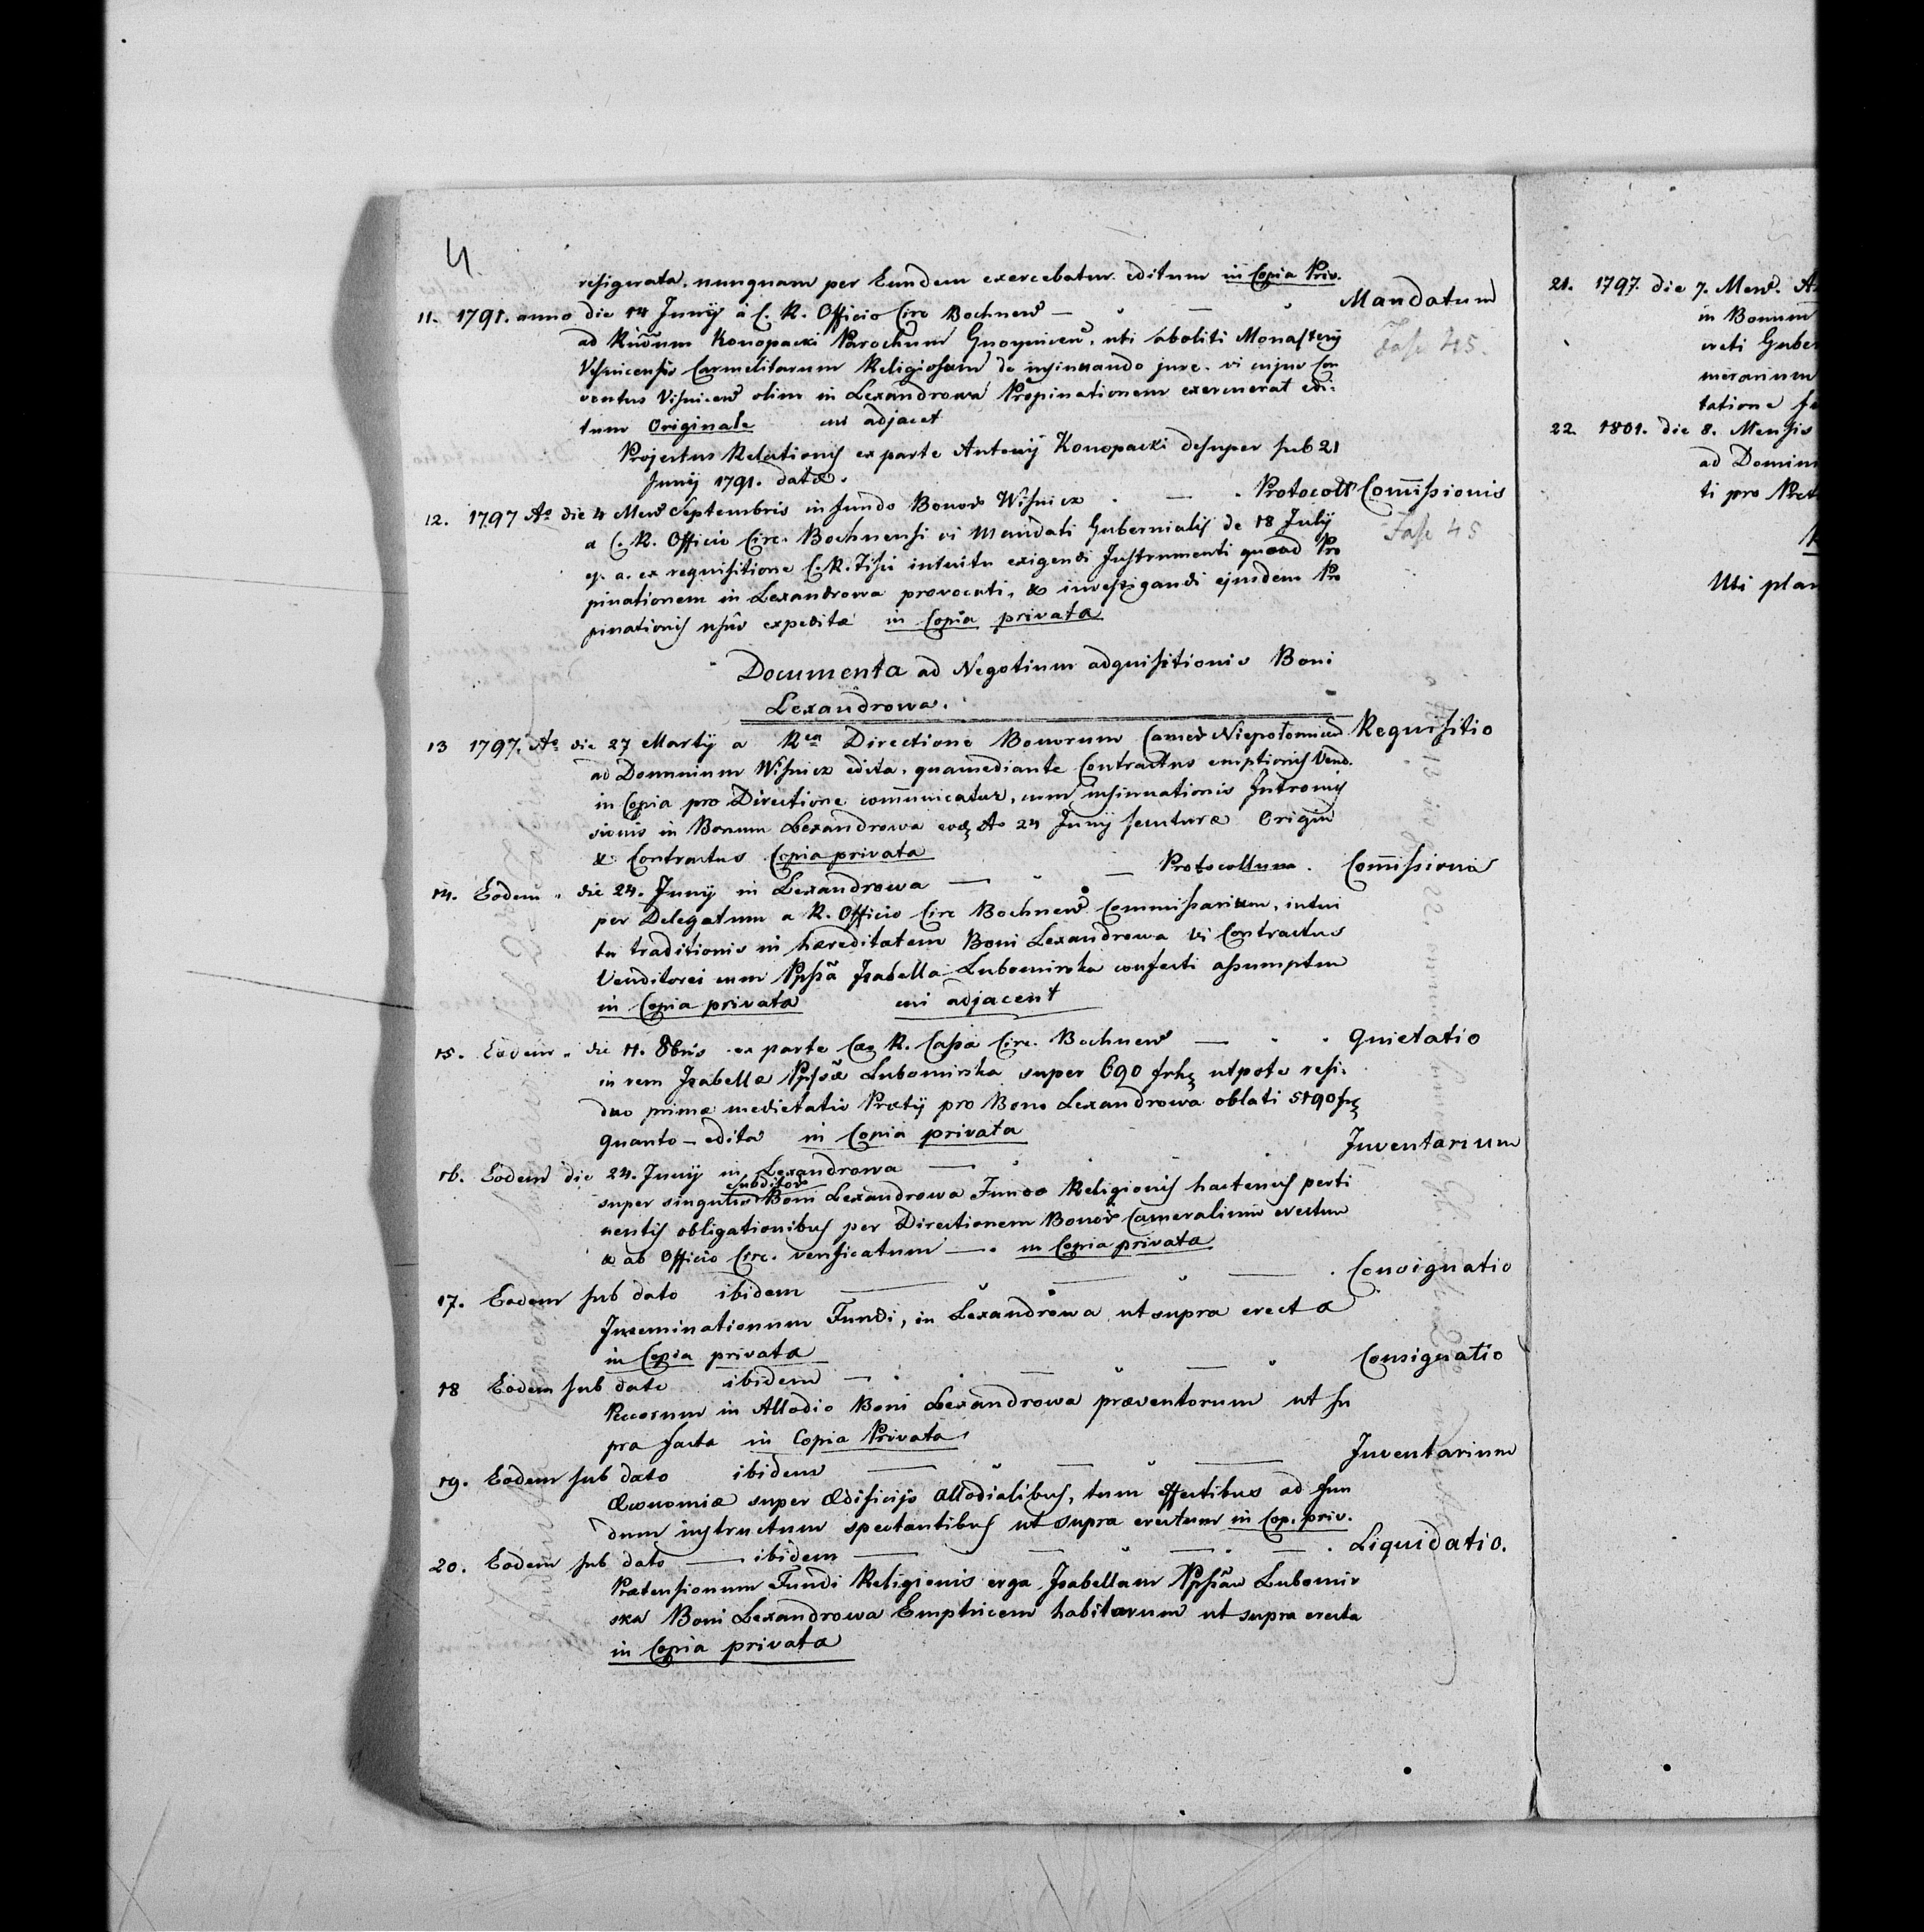 4.
resignata, nunquam per Eundem exercebatur editum in Copia Priv.
11. 1791. anno die 14 Junÿ à C. R. Officio Circ Bochnen̄ — Mandatum
ad Rndum Konopacki Parochum Gnoynicen̄, uti aboliti Monasterÿ Fasc 45.
Visnicensis Carmelitarum Religiosum de insinuando jure, vi cujus Con
ventus Visnicen̄ olim in Lexandrowa Propinationem exercuerat edi-
tum Originale cui adjacet
Projectus Relationis ex parte Antonÿ Konopacki desuper sub 21
Junÿ 1791. datæ.
12. 1797 Ao die 4 Men̄ Septembris in fundo Bonor̄ Wisnicz — Protocoll Com̄issionis
a C. R. Officio Circ. Bochnensi vi Mandati Gubernialis de 18 Julÿ Fasc 45
ej. a. ex requisitione C. R. Fisci intuitu exigendi Instrumenti quoad Pro
pinationem in Lexandrowa provocati, & investigandi ejusdem Pro
pinationis usus expedita in Copia privata
Documenta ad Negotium adquisitionis Boni
Lexandrowa.
13 1797. Ao die 27 Martÿ a Rea Directione Bonorum Camer̄ Niepołomicen̄ Requisitio
ad Dominium Wisnicz edita, qua mediante Contractus emptionis Vend.
in Copia pro Directione com̄unicatur, cum insinuationis Intromis
sionis in Bonum Lexandrowa eod Ao 24 Junÿ secuturæ Origin̄
& Contractus Copia privata
14. Eodem die 24. Junÿ in Lexandrowa — Protocollum. Com̄issionis
per Delegatum a R. Officio Circ Bochnen̄ Commissarium, intui
tu traditionis in hæreditatem Boni Lexandrowa vi Contractus
Venditorei cum Ppssā Isabella Lubomirska confecti assumptum
in Copia privata cui adjacent
15. Eodem die 11. 8bris ex parte Cæs R. Cassæ Circ. Bochnen̄ — Quietatio
in rem Isabellæ Ppssæ Lubomirska super 690 frh utpote resi-
duo primæ medietatis Pretÿ pro Bono Lexandrowa oblati 5190 fr
quanto — edita in Copia privata
16. Eodem die 24. Junÿ in Lexandrowa — Inventarium
super singulis subditor̄ Boni Lexandrowa Fundo Religionis hactenus perti
nentis obligationibus per Directionem Bonor̄ Cameralium erectum
& ab Officio Circ. verificatum — in Copia privata
17. Eodem sub dato ibidem — Consignatio
Inseminationum Fundi, in Lexandrowa ut supra erecta
in Copia privata
18 Eodem sub dato ibidem — Consignatio
Pecorum in Allodio Boni Lexandrowa præventorum ut su
pra facta in Copia Privata
19. Eodem sub dato ibidem — Inventarium
Œconomiæ super Ædificijs Allodialibus, tum effectibus ad fun
dum instructum spectantibus ut supra erectum in Cop. priv.
20. Eodem sub dato — ibidem — Liquidatio.
Prætensionum Fundi Religionis erga Isabellam Ppssam Lubomir
ska Boni Lexandrowa Emptricem habitarum ut supra erecta
in Copia privata
21. 1797. die 7. Men̄.
in Bonum
creti Guber
merarium
tatione
22. 1801. die 8. Mensis
ad Domin
ti pro
Uti plan